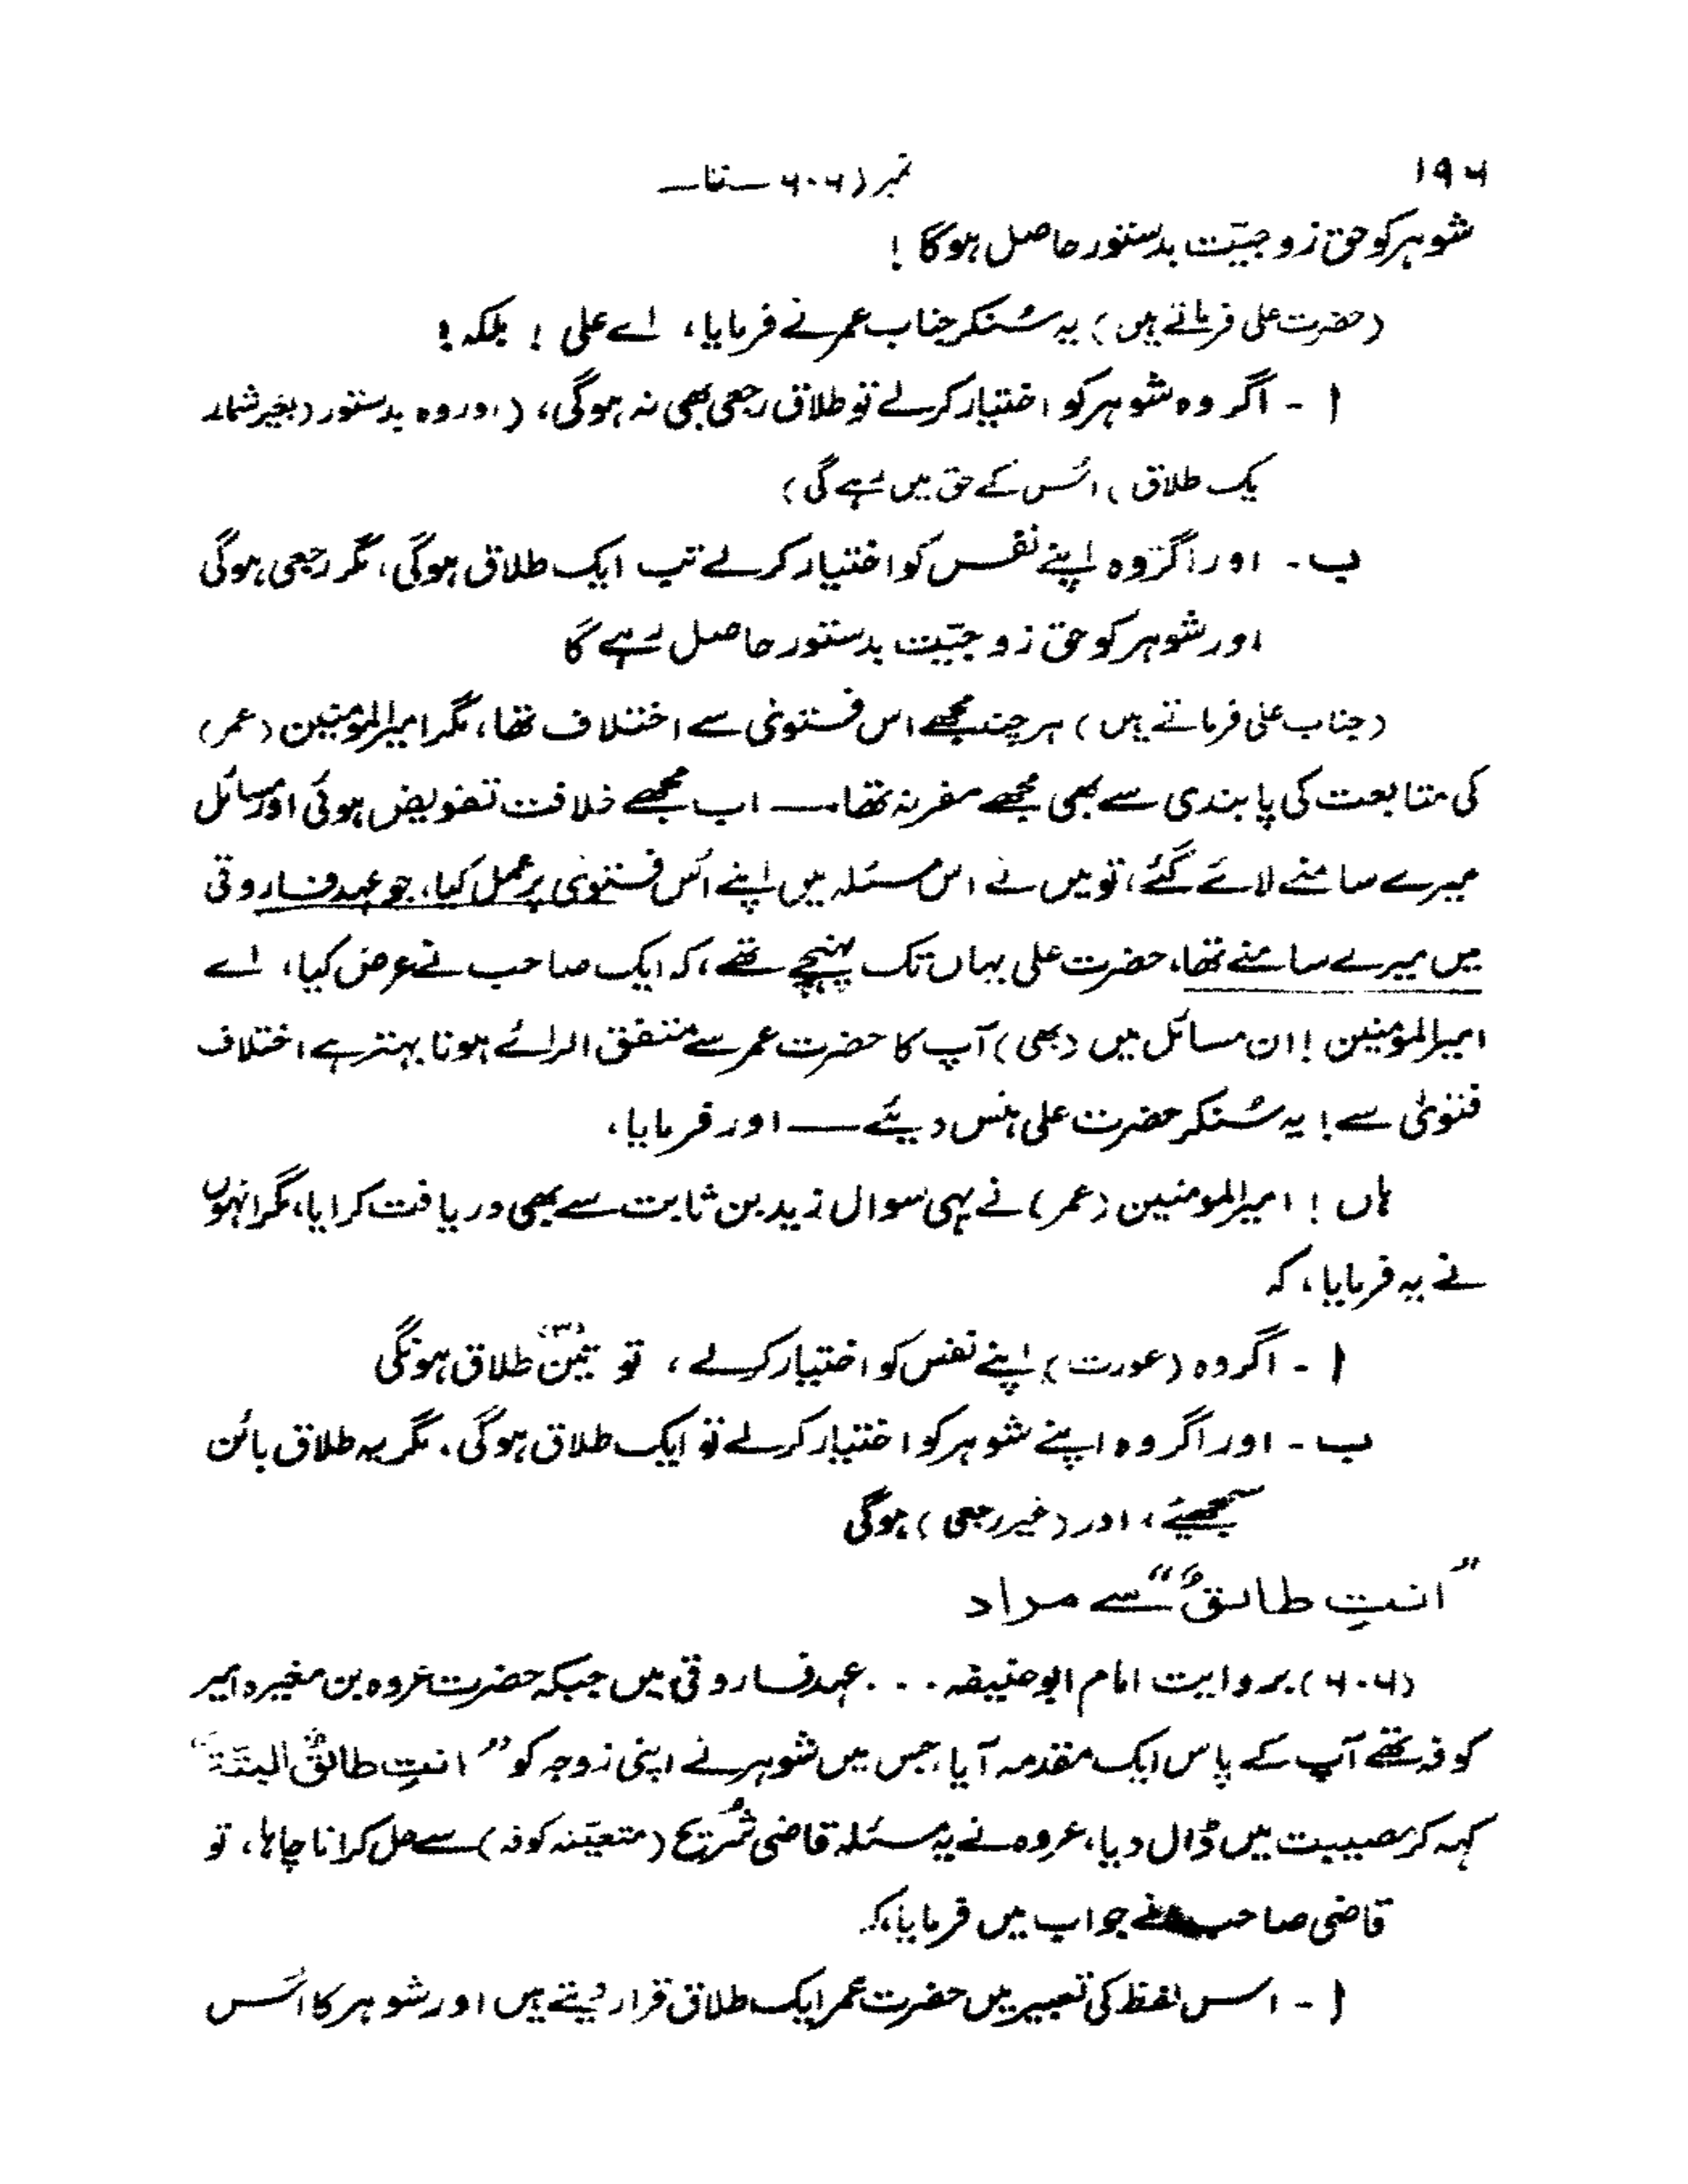 ۱۹۶
نمبر (۶۰۶ — تا —
شوہر کو حق زوجیّت بدستور حاصل ہوگا !
(حضرت علی فرماتے ہیں) یہ سُنکر جناب عمر نے فرمایا، اے علی ! بلکہ !
ا - اگر وہ شوہر کو اختیار کرلے تو طلاق رجعی بھی نہ ہوگی، (اور وہ بدستور (بغیر شمار
یک طلاق) اُس کے حق میں رہے گی)
ب - اور اگر وہ اپنے نفس کو اختیار کرلے تب ایک طلاق ہوگی، مگر رجعی ہوگی
اور شوہر کو حق زوجیّت بدستور حاصل رہے گا
(جناب علی فرماتے ہیں) ہر چند مجھے اس فتویٰ سے اختلاف تھا، مگر امیرالمؤمنین (عمر)
کی متابعت کی پابندی سے بھی مجھے مفر نہ تھا — اب مجھے خلافت تفویض ہوئی اور مسائل
میرے سامنے لائے گئے، تو میں نے اس مسئلہ میں اپنے اُس فتویٰ پر عمل کیا، جو عہد فاروقی
میں میرے سامنے تھا، حضرت علی یہاں تک پہنچے تھے، کہ ایک صاحب نے عرض کیا، اے
امیرالمؤمنین ! ان مسائل میں (بھی) آپ کا حضرت عمر سے متفق الرائے ہونا بہتر ہے اختلاف
فتویٰ سے ! یہ سُنکر حضرت علی ہنس دیئے — اور فرمایا،
ہاں ! امیرالمومنین (عمر) نے یہی سوال زید بن ثابت سے بھی دریافت کرایا، مگر انہوں
نے یہ فرمایا، کہ
ا - اگر وہ (عورت) اپنے نفس کو اختیار کرلے، تو تین (۳) طلاق ہونگی
ب - اور اگر وہ اپنے شوہر کو اختیار کرلے تو ایک طلاق ہوگی. مگر یہ طلاق بائن
سمجھیئے، اور (غیر رجعی) ہوگی
"انتِ طالقٌ" سے مراد
(۶۰۶) بروایت امام ابوحنیفہ . . . عہد فاروقی میں جبکہ حضرت عروہ بن مغیرہ امیر
کوفہ تھے آپ کے پاس ایک مقدمہ آیا، جس میں شوہر نے اپنی زوجہ کو "انتِ طالقٌ البتّۃ"
کہہ کر مصیبت میں ڈال دیا، عروہ نے یہ مسئلہ قاضی شُریح (متعیّنہ کوفہ) سے حل کرانا چاہا، تو
قاضی صاحب نے جواب میں فرمایا، کہ
ا - اس لفظ کی تعبیر میں حضرت عمر ایک طلاق قرار دیتے ہیں اور شوہر کا اُس